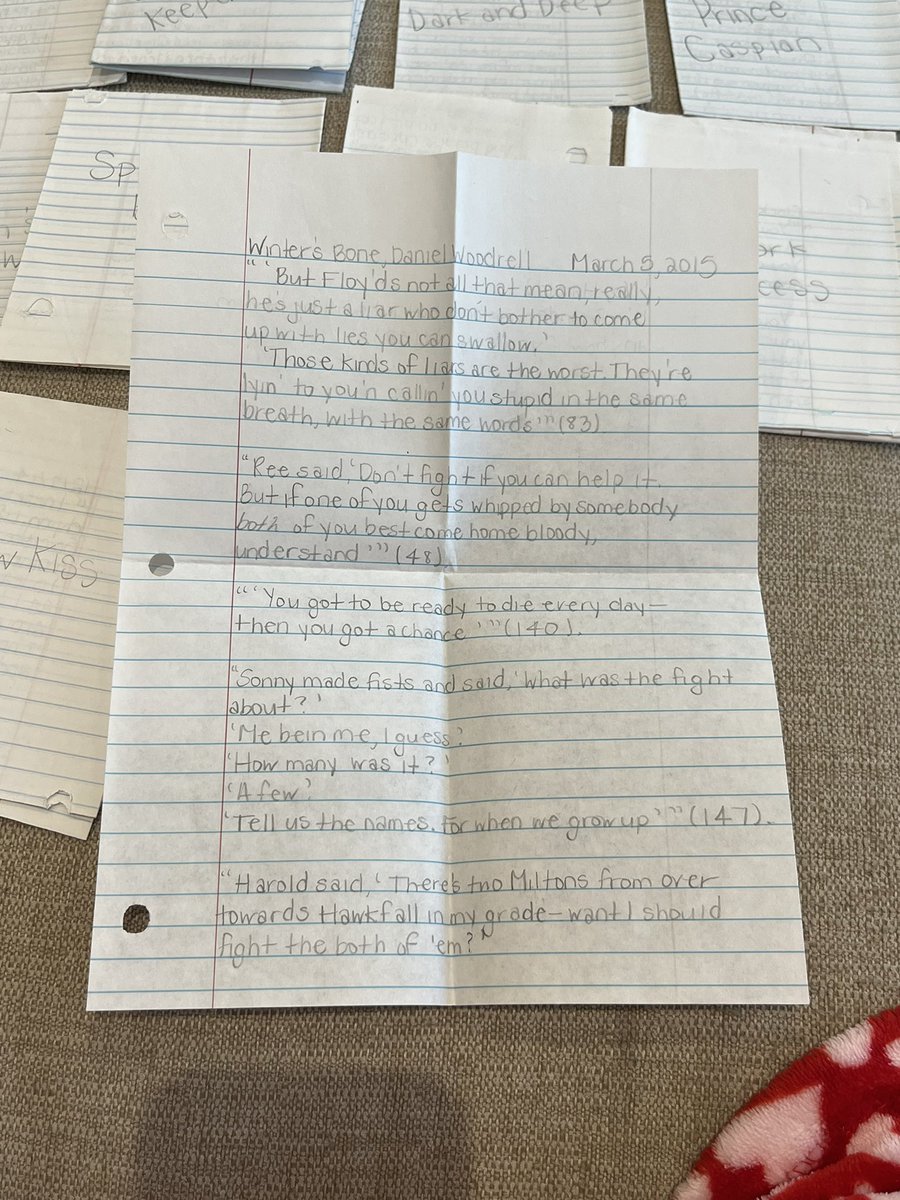 Keep
Dark and Deep
Prince
Caspian
Sp
ess
Kiss
Winter's Bone, Daniel Woodrell March 5, 2015
" 'But Floy'ds not all that mean, really,
he's just a liar who don't bother to come
up with lies you can swallow.'
'Those kinds of liars are the worst. They're
lyin' to you'n callin' you stupid in the same
breath, with the same words'" (83).
"Ree said, 'Don't fight if you can help it.
But if one of you gets whipped by somebody
both of you best come home bloody,
understand'" (48).
"'You got to be ready to die every day—
then you got a chance'" (140).
"Sonny made fists and said, 'what was the fight
about?'
'Me bein me, I guess.'
'How many was it?'
'A few.'
'Tell us the names. For when we grow up'" (147).
"Harold said, 'There's two Miltons from over
towards Hawkfall in my grade—want I should
fight the both of 'em?"